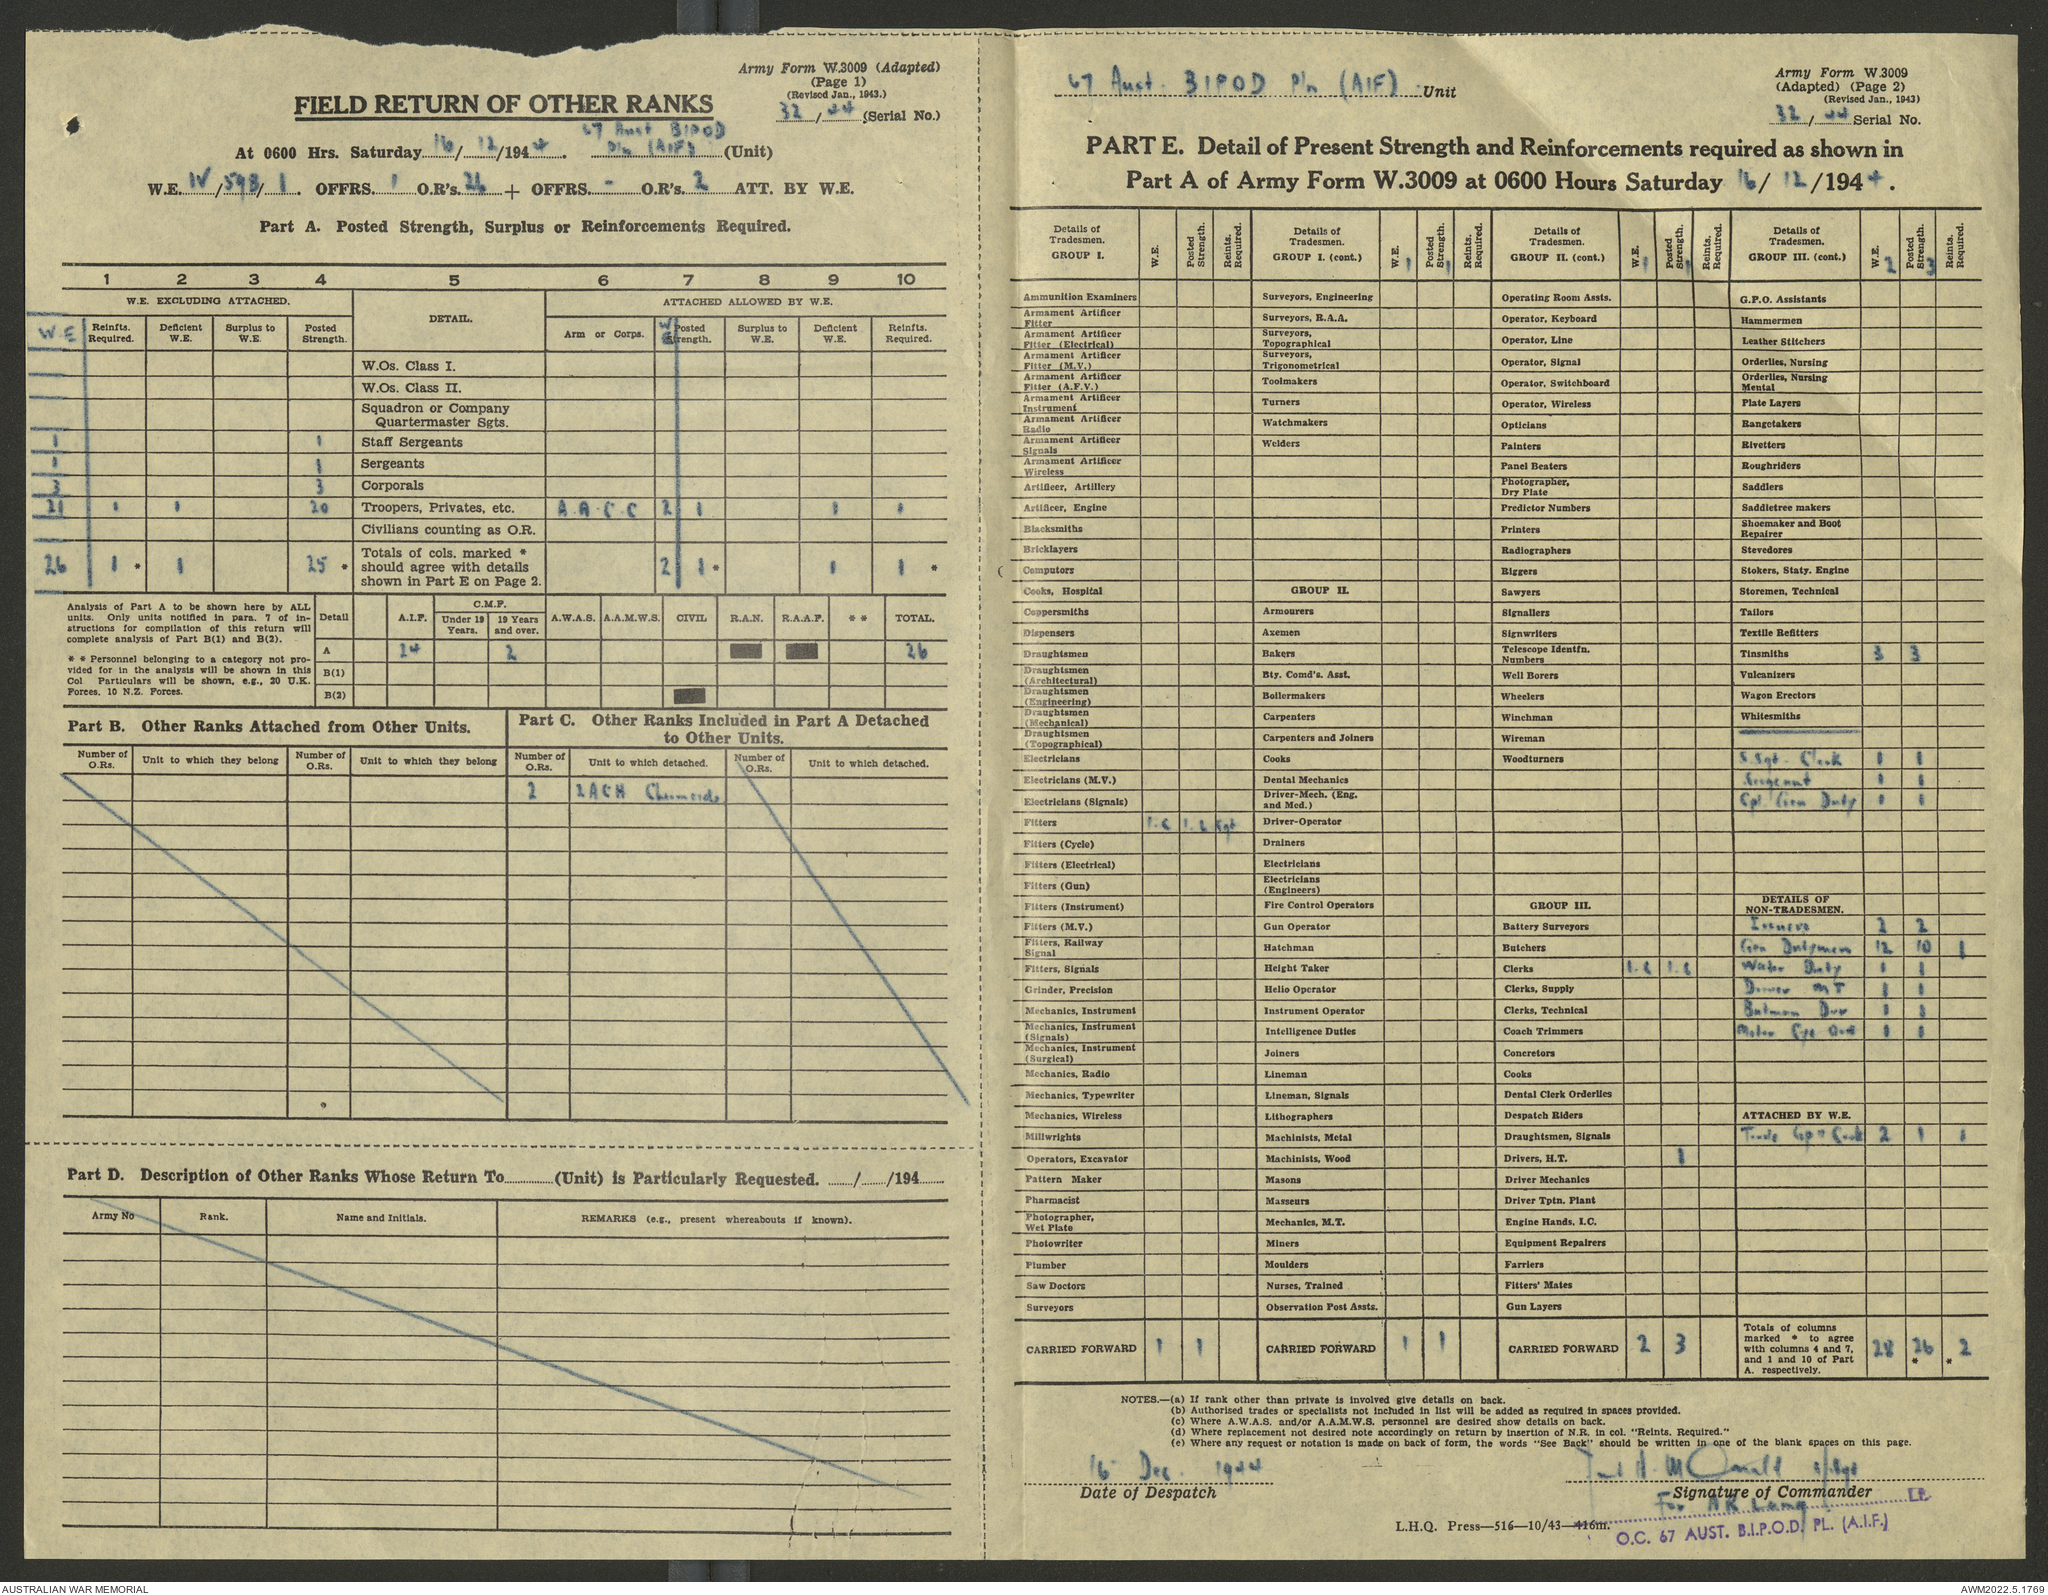 Army Form W.3009 (Adapted)
(Page 1)
(Revised Jan., 1943.)
32 / 44 (Serial No.)
FIELD RETURN OF OTHER RANKS
At 0600 Hrs. Saturday 16 / 12 /1944. 67 Aust BIPOD Pln (AIF) (Unit)
W.E. IV / 598 / 1. OFFRS. 1 O.R's. 26 + OFFRS. - O.R's. 2 ATT. BY W.E.
Part A. Posted Strength, Surplus or Reinforcements Required.
1 2 3 4 5 6 7 8 9 10
W.E. EXCLUDING ATTACHED. DETAIL. ATTACHED ALLOWED BY W.E.
W.E Reinfts. Required. Deficient W.E. Surplus to W.E. Posted Strength. Arm or Corps. WE Posted Strength. Surplus to W.E. Deficient W.E. Reinfts. Required.
W.Os. Class I.
W.Os. Class II.
Squadron or Company Quartermaster Sgts.
1 1 Staff Sergeants
1 1 Sergeants
3 3 Corporals
21 1 1 20 Troopers, Privates, etc. A.A.C.C 2 1 1 1
Civilians counting as O.R.
26 1 * 1 25 * Totals of cols. marked * should agree with details shown in Part E on Page 2. 2 1 * 1 1 *
Analysis of Part A to be shown here by ALL
units. Only units notified in para. 7 of in-
structions for compilation of this return will
complete analysis of Part B(1) and B(2).
* * Personnel belonging to a category not pro-
vided for in the analysis will be shown in this
Col Particulars will be shown, e.g., 20 U.K.
Forces, 10 N.Z. Forces.
Detail A.I.F. C.M.F. Under 19 Years. 19 Years and over. A.W.A.S. A.A.M.W.S. CIVIL R.A.N. R.A.A.F. * * TOTAL.
A 24 2 26
B(1)
B(2)
Part B. Other Ranks Attached from Other Units.
Number of O.Rs. Unit to which they belong Number of O.Rs. Unit to which they belong
Part C. Other Ranks Included in Part A Detached
to Other Units.
Number of O.Rs. Unit to which detached. Number of O.Rs. Unit to which detached.
2 2 ACH
Part D. Description of Other Ranks Whose Return To (Unit) is Particularly Requested. / /194
Army No Rank. Name and Initials. REMARKS (e.g., present whereabouts if known).
67 Aust. BIPOD Pln (AIF) Unit
Army Form W.3009
(Adapted) (Page 2)
(Revised Jan., 1943)
32 / 44 Serial No.
PART E. Detail of Present Strength and Reinforcements required as shown in
Part A of Army Form W.3009 at 0600 Hours Saturday 16 / 12 /1944.
Details of Tradesmen. GROUP I. W.E. Posted Strength. Reints. Required.
Ammunition Examiners
Armament Artificer Fitter
Armament Artificer Fitter (Electrical)
Armament Artificer Fitter (M.V.)
Armament Artificer Fitter (A.F.V.)
Armament Artificer Instrument
Armament Artificer Radio
Armament Artificer Signals
Armament Artificer Wireless
Artificer, Artillery
Artificer, Engine
Blacksmiths
Bricklayers
Computors
Cooks, Hospital
Coppersmiths
Dispensers
Draughtsmen
Draughtsmen (Architectural)
Draughtsmen (Engineering)
Draughtsmen (Mechanical)
Draughtsmen (Topographical)
Electricians
Electricians (M.V.)
Electricians (Signals)
Fitters 1.C 1.C Cpl
Fitters (Cycle)
Fitters (Electrical)
Fitters (Gun)
Fitters (Instrument)
Fitters (M.V.)
Fitters, Railway Signal
Fitters, Signals
Grinder, Precision
Mechanics, Instrument
Mechanics, Instrument (Signals)
Mechanics, Instrument (Surgical)
Mechanics, Radio
Mechanics, Typewriter
Mechanics, Wireless
Millwrights
Operators, Excavator
Pattern Maker
Pharmacist
Photographer, Wet Plate
Photowriter
Plumber
Saw Doctors
Surveyors
CARRIED FORWARD 1 1
Details of Tradesmen. GROUP I. (cont.) W.E. 1 Posted Strength. 1 Reints. Required.
Surveyors, Engineering
Surveyors, R.A.A.
Surveyors, Topographical
Surveyors, Trigonometrical
Toolmakers
Turners
Watchmakers
Welders
GROUP II.
Armourers
Axemen
Bakers
Bty. Comd's. Asst.
Boilermakers
Carpenters
Carpenters and Joiners
Cooks
Dental Mechanics
Driver-Mech. (Eng. and Med.)
Driver-Operator
Drainers
Electricians
Electricians (Engineers)
Fire Control Operators
Gun Operator
Hatchman
Height Taker
Helio Operator
Instrument Operator
Intelligence Duties
Joiners
Lineman
Lineman, Signals
Lithographers
Machinists, Metal
Machinists, Wood
Masons
Masseurs
Mechanics, M.T.
Miners
Moulders
Nurses, Trained
Observation Post Assts.
CARRIED FORWARD 1 1
Details of Tradesmen. GROUP II. (cont.) W.E. 1 Posted Strength. 1 Reints. Required.
Operating Room Assts.
Operator, Keyboard
Operator, Line
Operator, Signal
Operator, Switchboard
Operator, Wireless
Opticians
Painters
Panel Beaters
Photographer, Dry Plate
Predictor Numbers
Printers
Radiographers
Riggers
Sawyers
Signallers
Signwriters
Telescope Identfn. Numbers
Well Borers
Wheelers
Winchman
Wireman
Woodturners
GROUP III.
Battery Surveyors
Butchers
Clerks 1.C 1.C
Clerks, Supply
Clerks, Technical
Coach Trimmers
Concretors
Cooks
Dental Clerk Orderlies
Despatch Riders
Draughtsmen, Signals
Drivers, H.T. 1
Driver Mechanics
Driver Tptn. Plant
Engine Hands, I.C.
Equipment Repairers
Farriers
Fitters' Mates
Gun Layers
CARRIED FORWARD 2 3
Details of Tradesmen. GROUP III. (cont.) W.E. 2 Posted Strength. 3 Reints. Required.
G.P.O. Assistants
Hammermen
Leather Stitchers
Orderlies, Nursing
Orderlies, Nursing Mental
Plate Layers
Rangetakers
Rivetters
Roughriders
Saddlers
Saddletree makers
Shoemaker and Boot Repairer
Stevedores
Stokers, Staty. Engine
Storemen, Technical
Tailors
Textile Refitters
Tinsmiths 3 3
Vulcanizers
Wagon Erectors
Whitesmiths
S.Sgt. Clerk 1 1
Sergeant 1 1
Cpl. Gen Duty 1 1
DETAILS OF NON-TRADESMEN.
2 2
Gen Dutymen 12 10 1
Water Duty 1 1
Driver MT 1 1
Batman Dvr 1 1
Motor Cyc 1 1
ATTACHED BY W.E.
Trade Gp II Cook 2 1 1
Totals of columns marked * to agree with columns 4 and 7, and 1 and 10 of Part A. respectively. 28 26 * * 2
NOTES.—(a) If rank other than private is involved give details on back.
(b) Authorised trades or specialists not included in list will be added as required in spaces provided.
(c) Where A.W.A.S. and/or A.A.M.W.S. personnel are desired show details on back.
(d) Where replacement not desired note accordingly on return by insertion of N.R. in col. "Reints. Required."
(e) Where any request or notation is made on back of form, the words "See Back" should be written in one of the blank spaces on this page.
16 Dec. 1944
Date of Despatch
A. McDonald
Signature of Commander
For AR Lang Lt
L.H.Q. Press—516—10/43—416m.
O.C. 67 AUST. B.I.P.O.D. PL. (A.I.F.)
AUSTRALIAN WAR MEMORIAL
AWM2022.5.1769